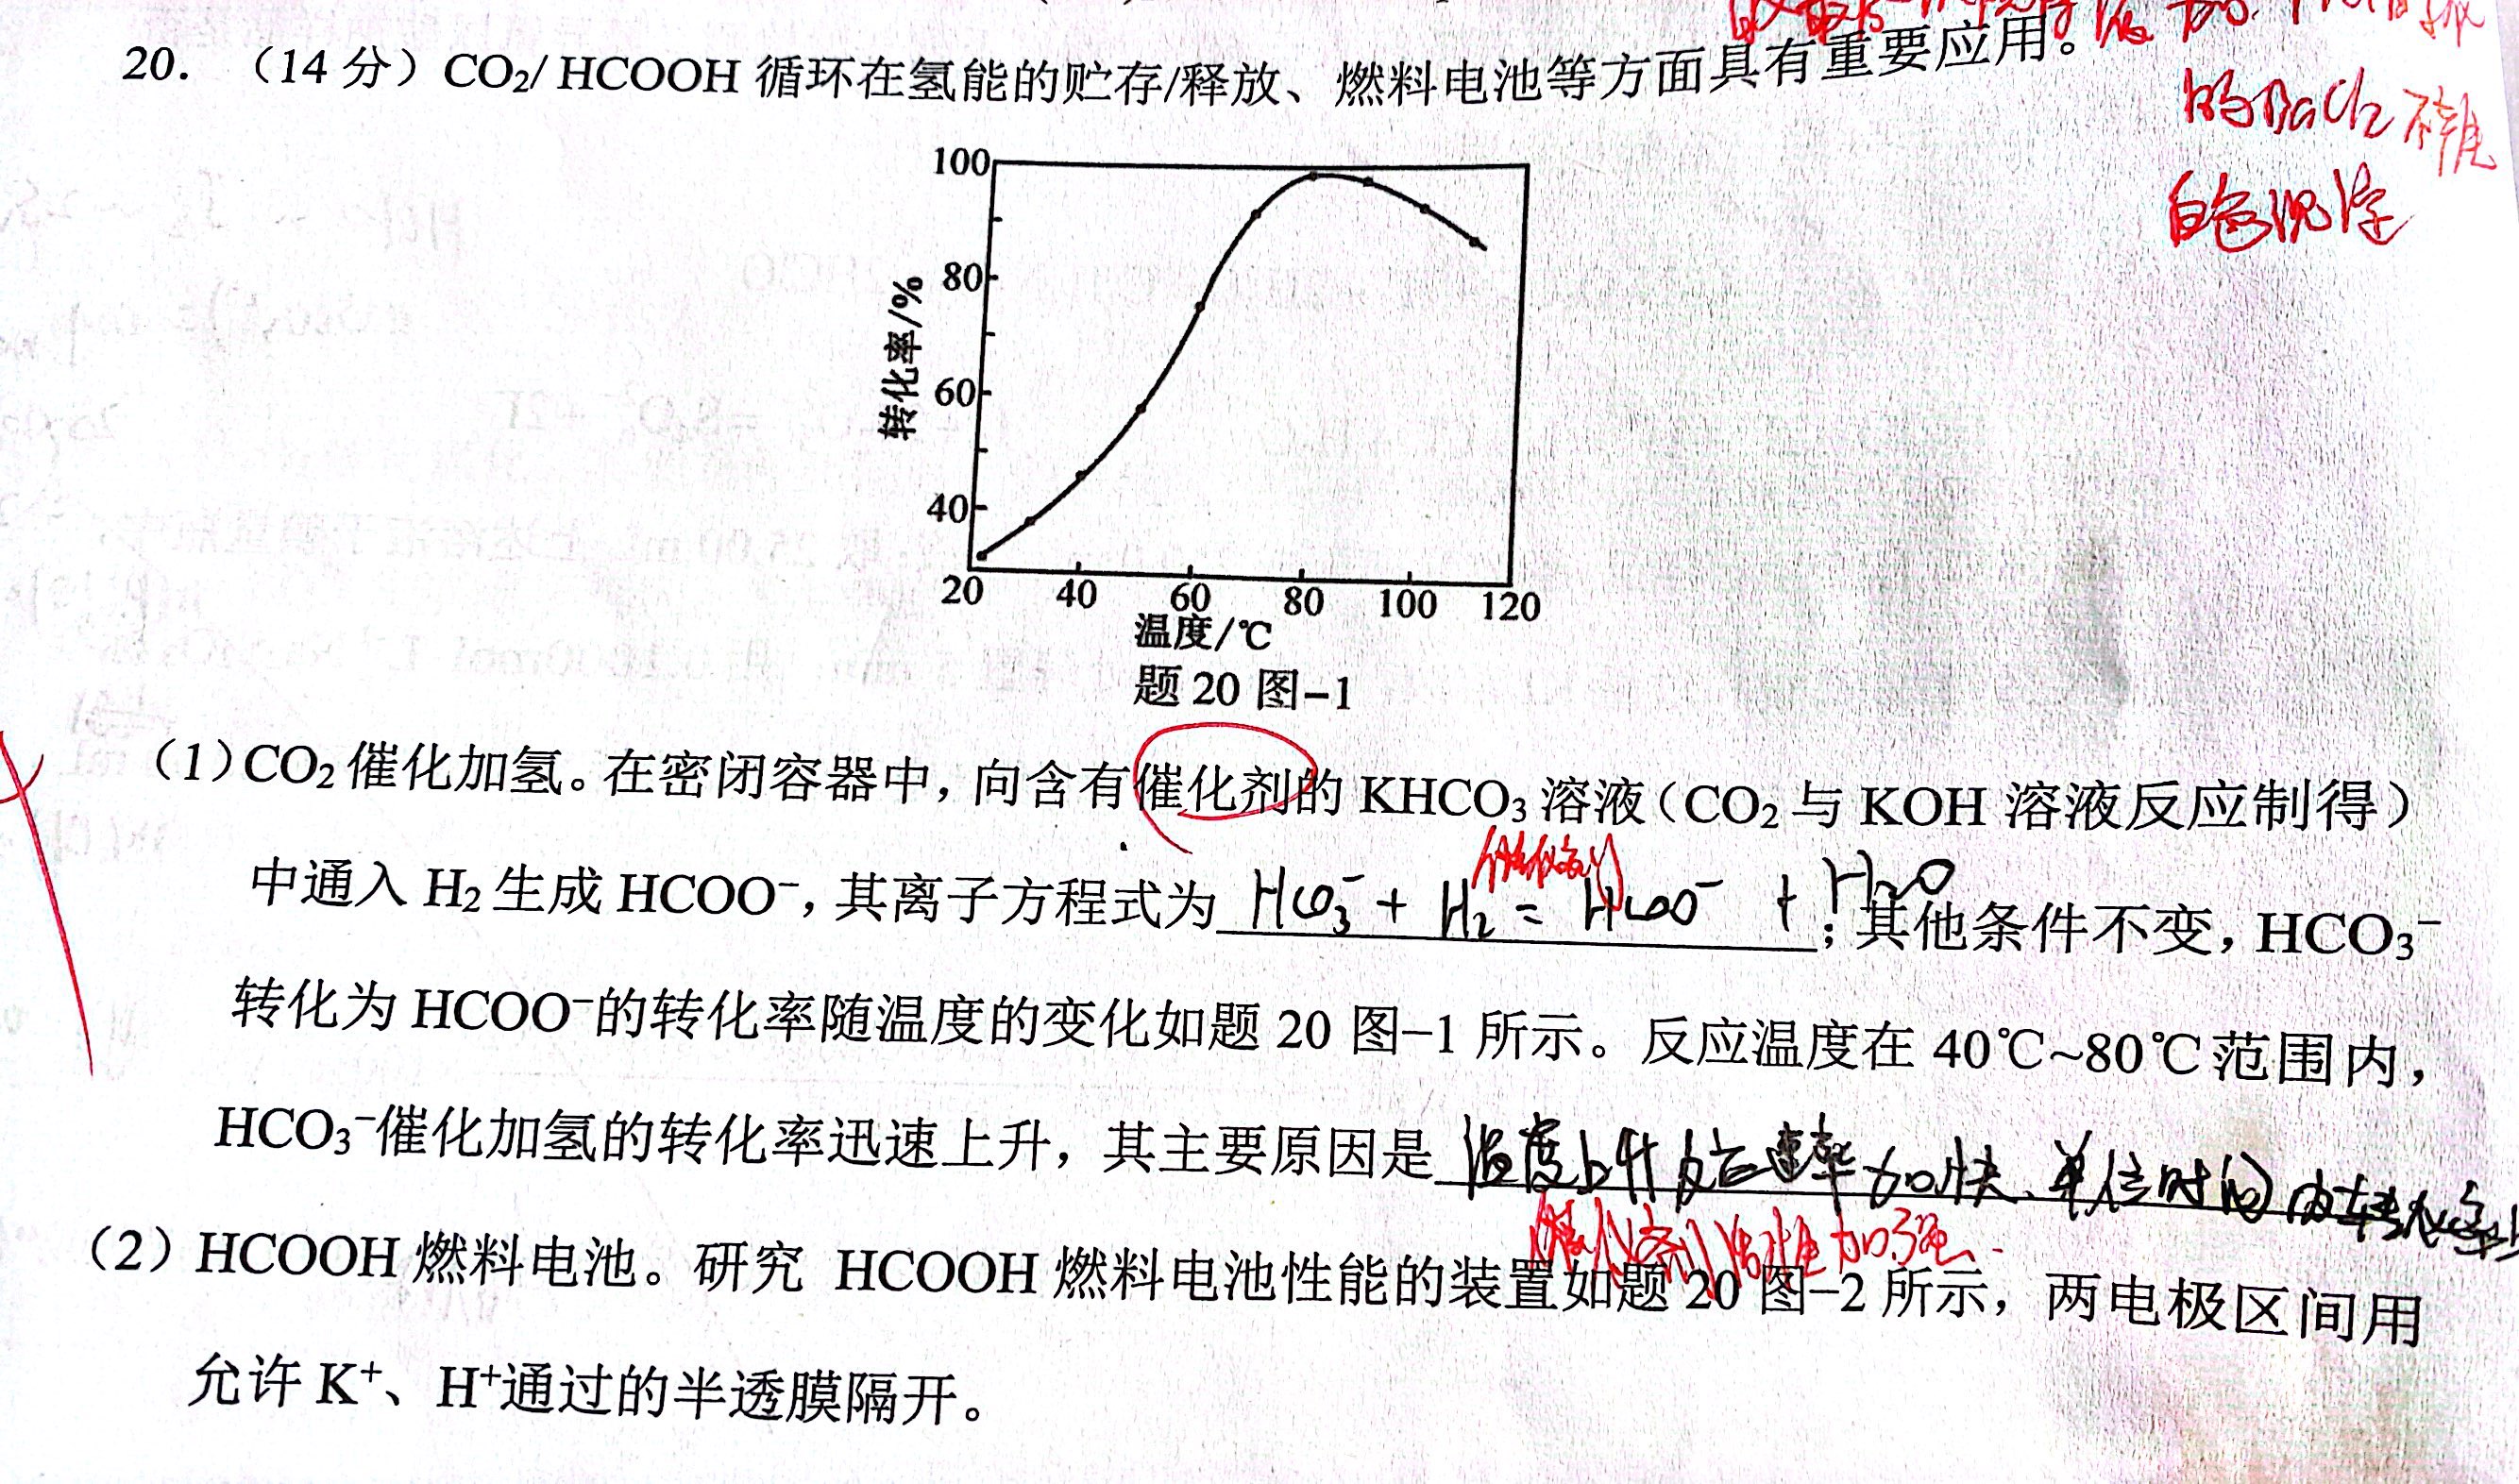 20. （14 分）CO₂/ HCOOH 循环在氢能的贮存/释放、燃料电池等方面具有重要应用。
的BaCl₂
白色沉淀
100
80
60
40
转化率/%
20 40 60 80 100 120
温度/℃
题 20 图-1
（1）CO₂ 催化加氢。在密闭容器中，向含有催化剂的 KHCO₃ 溶液（CO₂ 与 KOH 溶液反应制得）
催化剂
中通入 H₂ 生成 HCOO⁻，其离子方程式为 HCO₃⁻ + H₂ = HCOO⁻ + H₂O ；其他条件不变，HCO₃⁻
转化为 HCOO⁻的转化率随温度的变化如题 20 图-1 所示。反应温度在 40℃~80℃范围内，
HCO₃⁻催化加氢的转化率迅速上升，其主要原因是 温度上升反应速率加快、单位时间内转化率
催化剂活性加强
（2）HCOOH 燃料电池。研究 HCOOH 燃料电池性能的装置如题 20 图-2 所示，两电极区间用
允许 K⁺、H⁺通过的半透膜隔开。